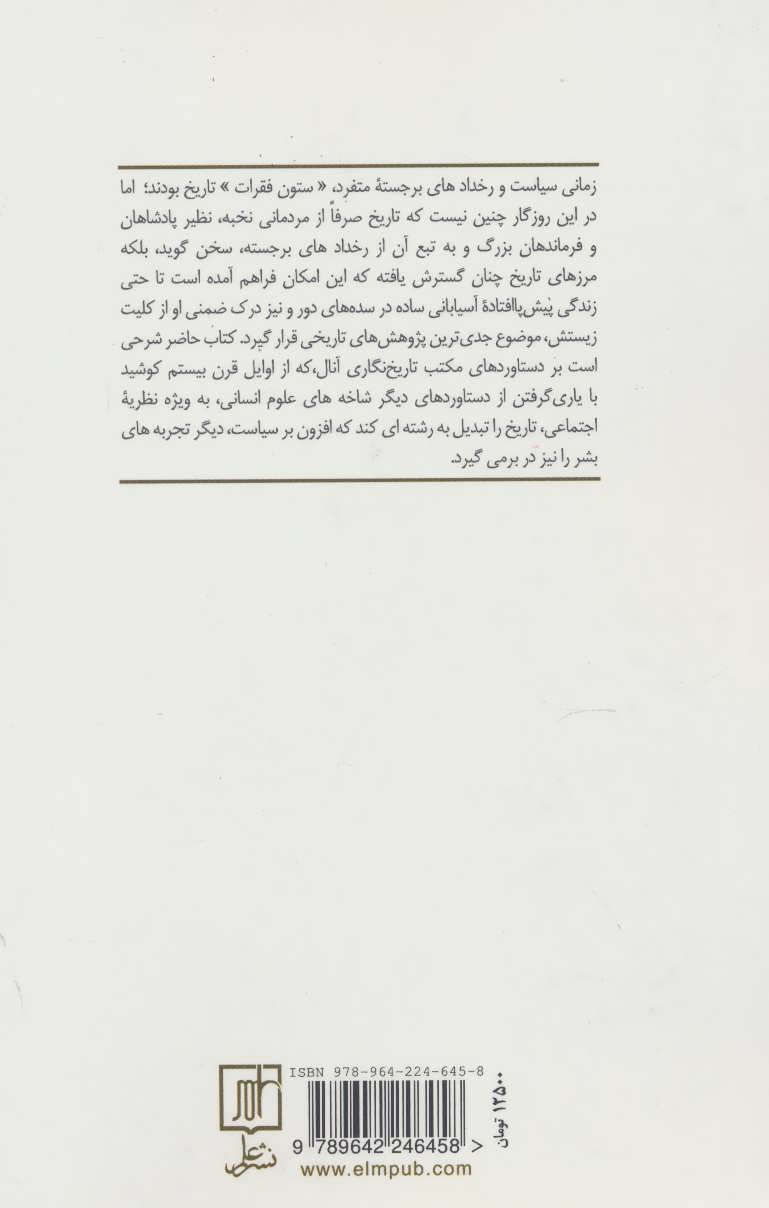 زمانی سیاست و رخداد های برجستهٔ متفرد، « ستون فقرات » تاریخ بودند؛ اما
در این روزگار چنین نیست که تاریخ صرفاً از مردمانی نخبه، نظیر پادشاهان
و فرماندهان بزرگ و به تبع آن از رخداد های برجسته، سخن گوید، بلکه
مرزهای تاریخ چنان گسترش یافته که این امکان فراهم آمده است تا حتی
زندگی پیش‌پاافتادهٔ آسیابانی ساده در سده‌های دور و نیز درک ضمنی او از کلیت
زیستش، موضوع جدی‌ترین پژوهش‌های تاریخی قرار گیرد. کتاب حاضر شرحی
است بر دستاوردهای مکتب تاریخ‌نگاری آنال،که از اوایل قرن بیستم کوشید
با یاری‌گرفتن از دستاوردهای دیگر شاخه های علوم انسانی، به ویژه نظریهٔ
اجتماعی، تاریخ را تبدیل به رشته ای کند که افزون بر سیاست، دیگر تجربه های
بشر را نیز در برمی گیرد.
ISBN 978-964-224-645-8
9 789642 246458 >
۱۲۵۰۰ تومان
نشر علم
www.elmpub.com